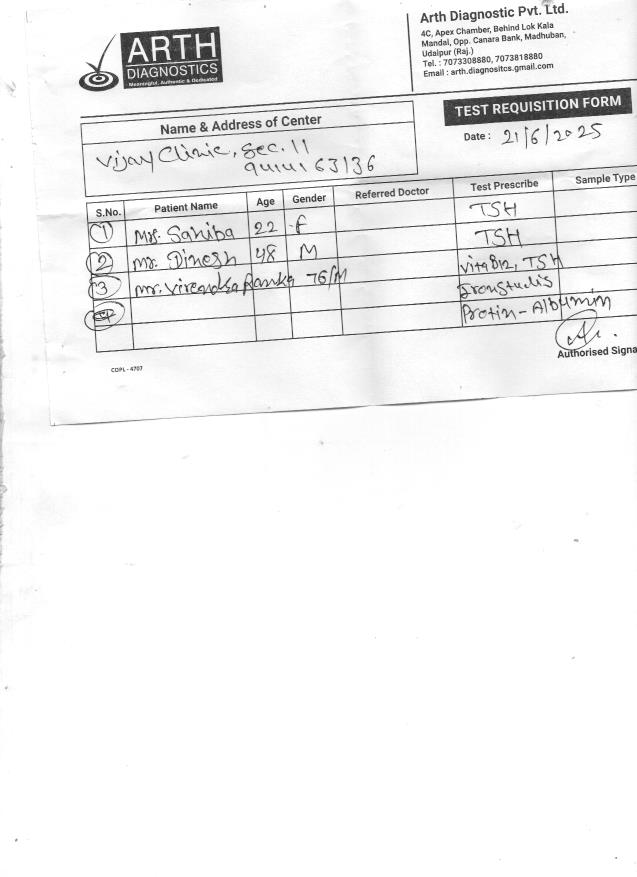 ARTH
DIAGNOSTICS
Meaningful, Authentic & Dedicated
Arth Diagnostic Pvt. Ltd.
4C, Apex Chamber, Behind Lok Kala
Mandal, Opp. Canara Bank, Madhuban,
Udaipur (Raj.)
Tel. : 7073308880, 7073818880
Email : arth.diagnositcs.gmail.com
TEST REQUISITION FORM
Date : 21/6/2025
Name & Address of Center
Vijay Clinic, Sec. 11
9414163136
S.No. Patient Name Age Gender Referred Doctor Test Prescribe Sample Type
1 Mrs. Sahiba 22 F TSH
2 Mr. Dinesh 48 M TSH
3 Mr. Virendra 76/M Vita B12, TSH
Iron Studis
4 Protin - Albumin
Authorised Signa
CDPL - 4707